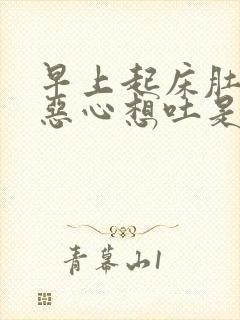 早上起床肚
恶心想吐是
青幕山1